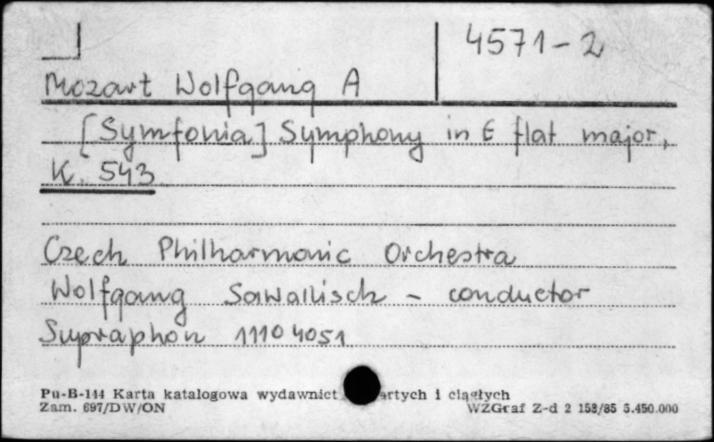 4571-2
Mozart Wolfgang A
[Symfonia] Symphony in E flat major,
K. 543
Czech Philharmonic Orchestra
Wolfgang Sawallisch - conductor
Supraphon 11104051
Pu-B-144 Karta katalogowa wydawnict artych i ciągłych
Zam. 697/DW/ON WZGraf Z-d 2 158/85 5.450.000